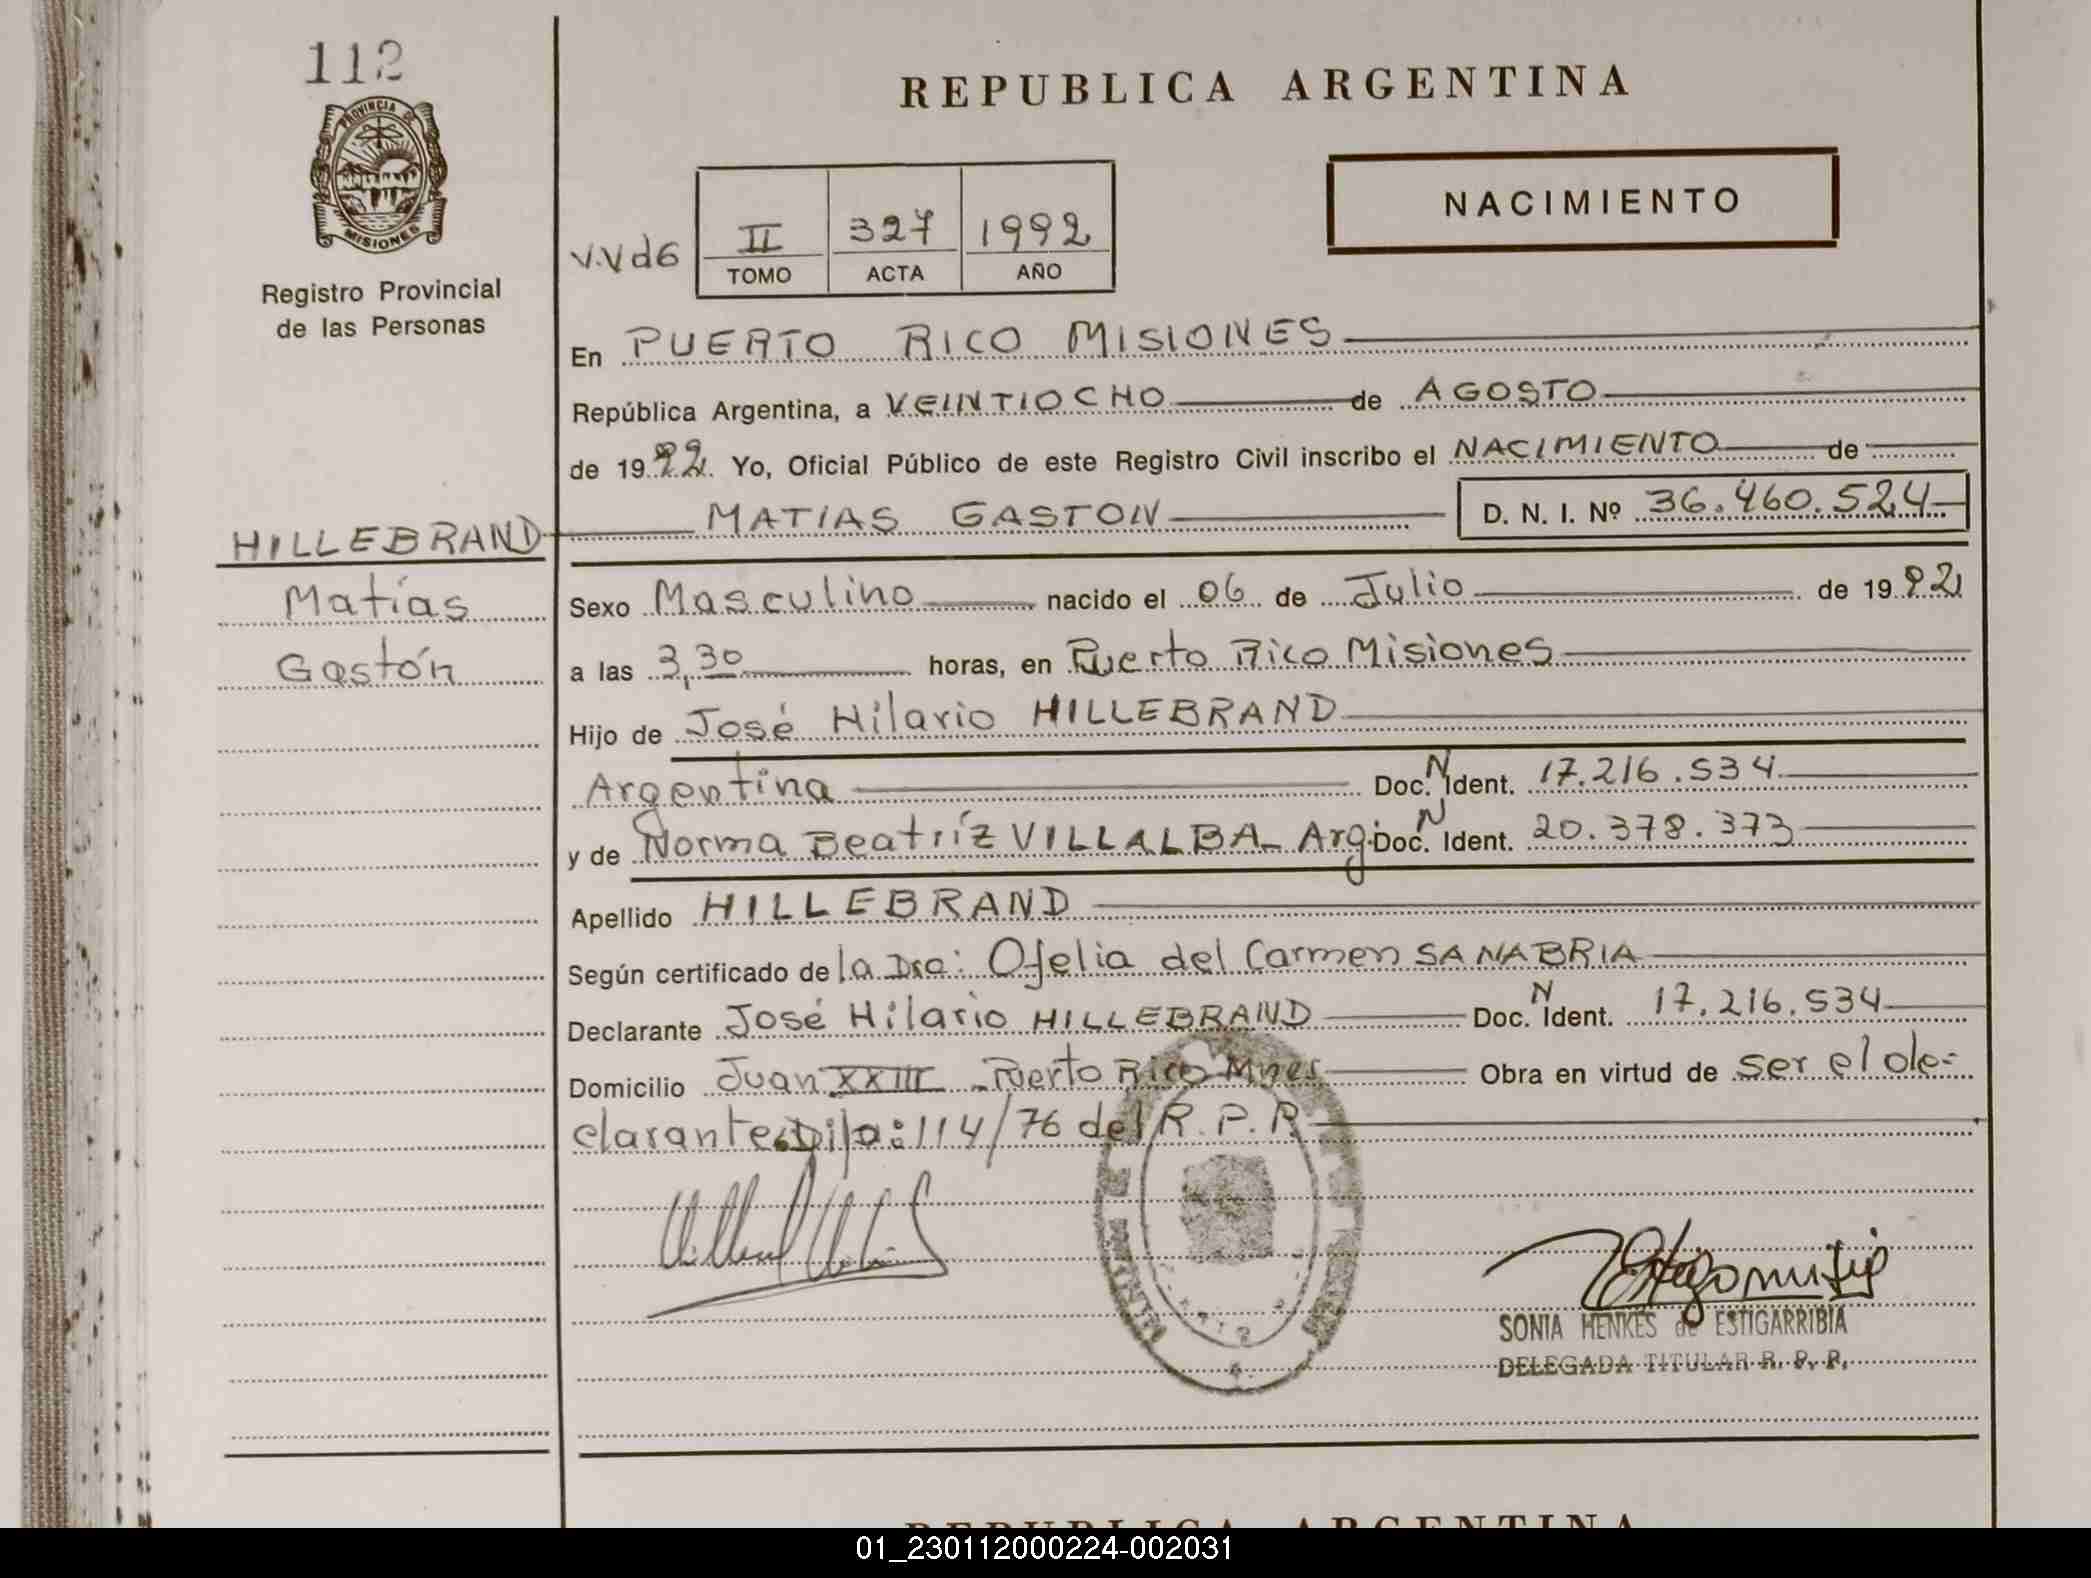 112
PROVINCIA DE
MISIONES
Registro Provincial
de las Personas
REPUBLICA ARGENTINA
NACIMIENTO
V.Vd6
II 327 1992
TOMO ACTA AÑO
En PUERTO RICO MISIONES
República Argentina, a VEINTIOCHO de AGOSTO
de 1992. Yo, Oficial Público de este Registro Civil inscribo el NACIMIENTO de
MATIAS GASTON D. N. I. Nº 36.460.524
HILLEBRAND
Matías
Gastón
Sexo Masculino nacido el 06 de Julio de 1992
a las 3,30 horas, en Puerto Rico Misiones
Hijo de José Hilario HILLEBRAND
Argentina Doc. N Ident. 17.216.534
y de Norma Beatríz VILLALBA - Arg. Doc. N Ident. 20.378.373
Apellido HILLEBRAND
Según certificado de la Dra: Ofelia del Carmen SANABRIA
Declarante José Hilario HILLEBRAND Doc. N Ident. 17.216.534
Domicilio Juan XXIII - Puerto Rico Mnes Obra en virtud de ser el de-
clarante. 114/76 del R.P.P.
SONIA HENKES de ESTIGARRIBIA
DELEGADA TITULAR R. P. P.
REPUBLICA ARGENTINA
01_230112000224-002031